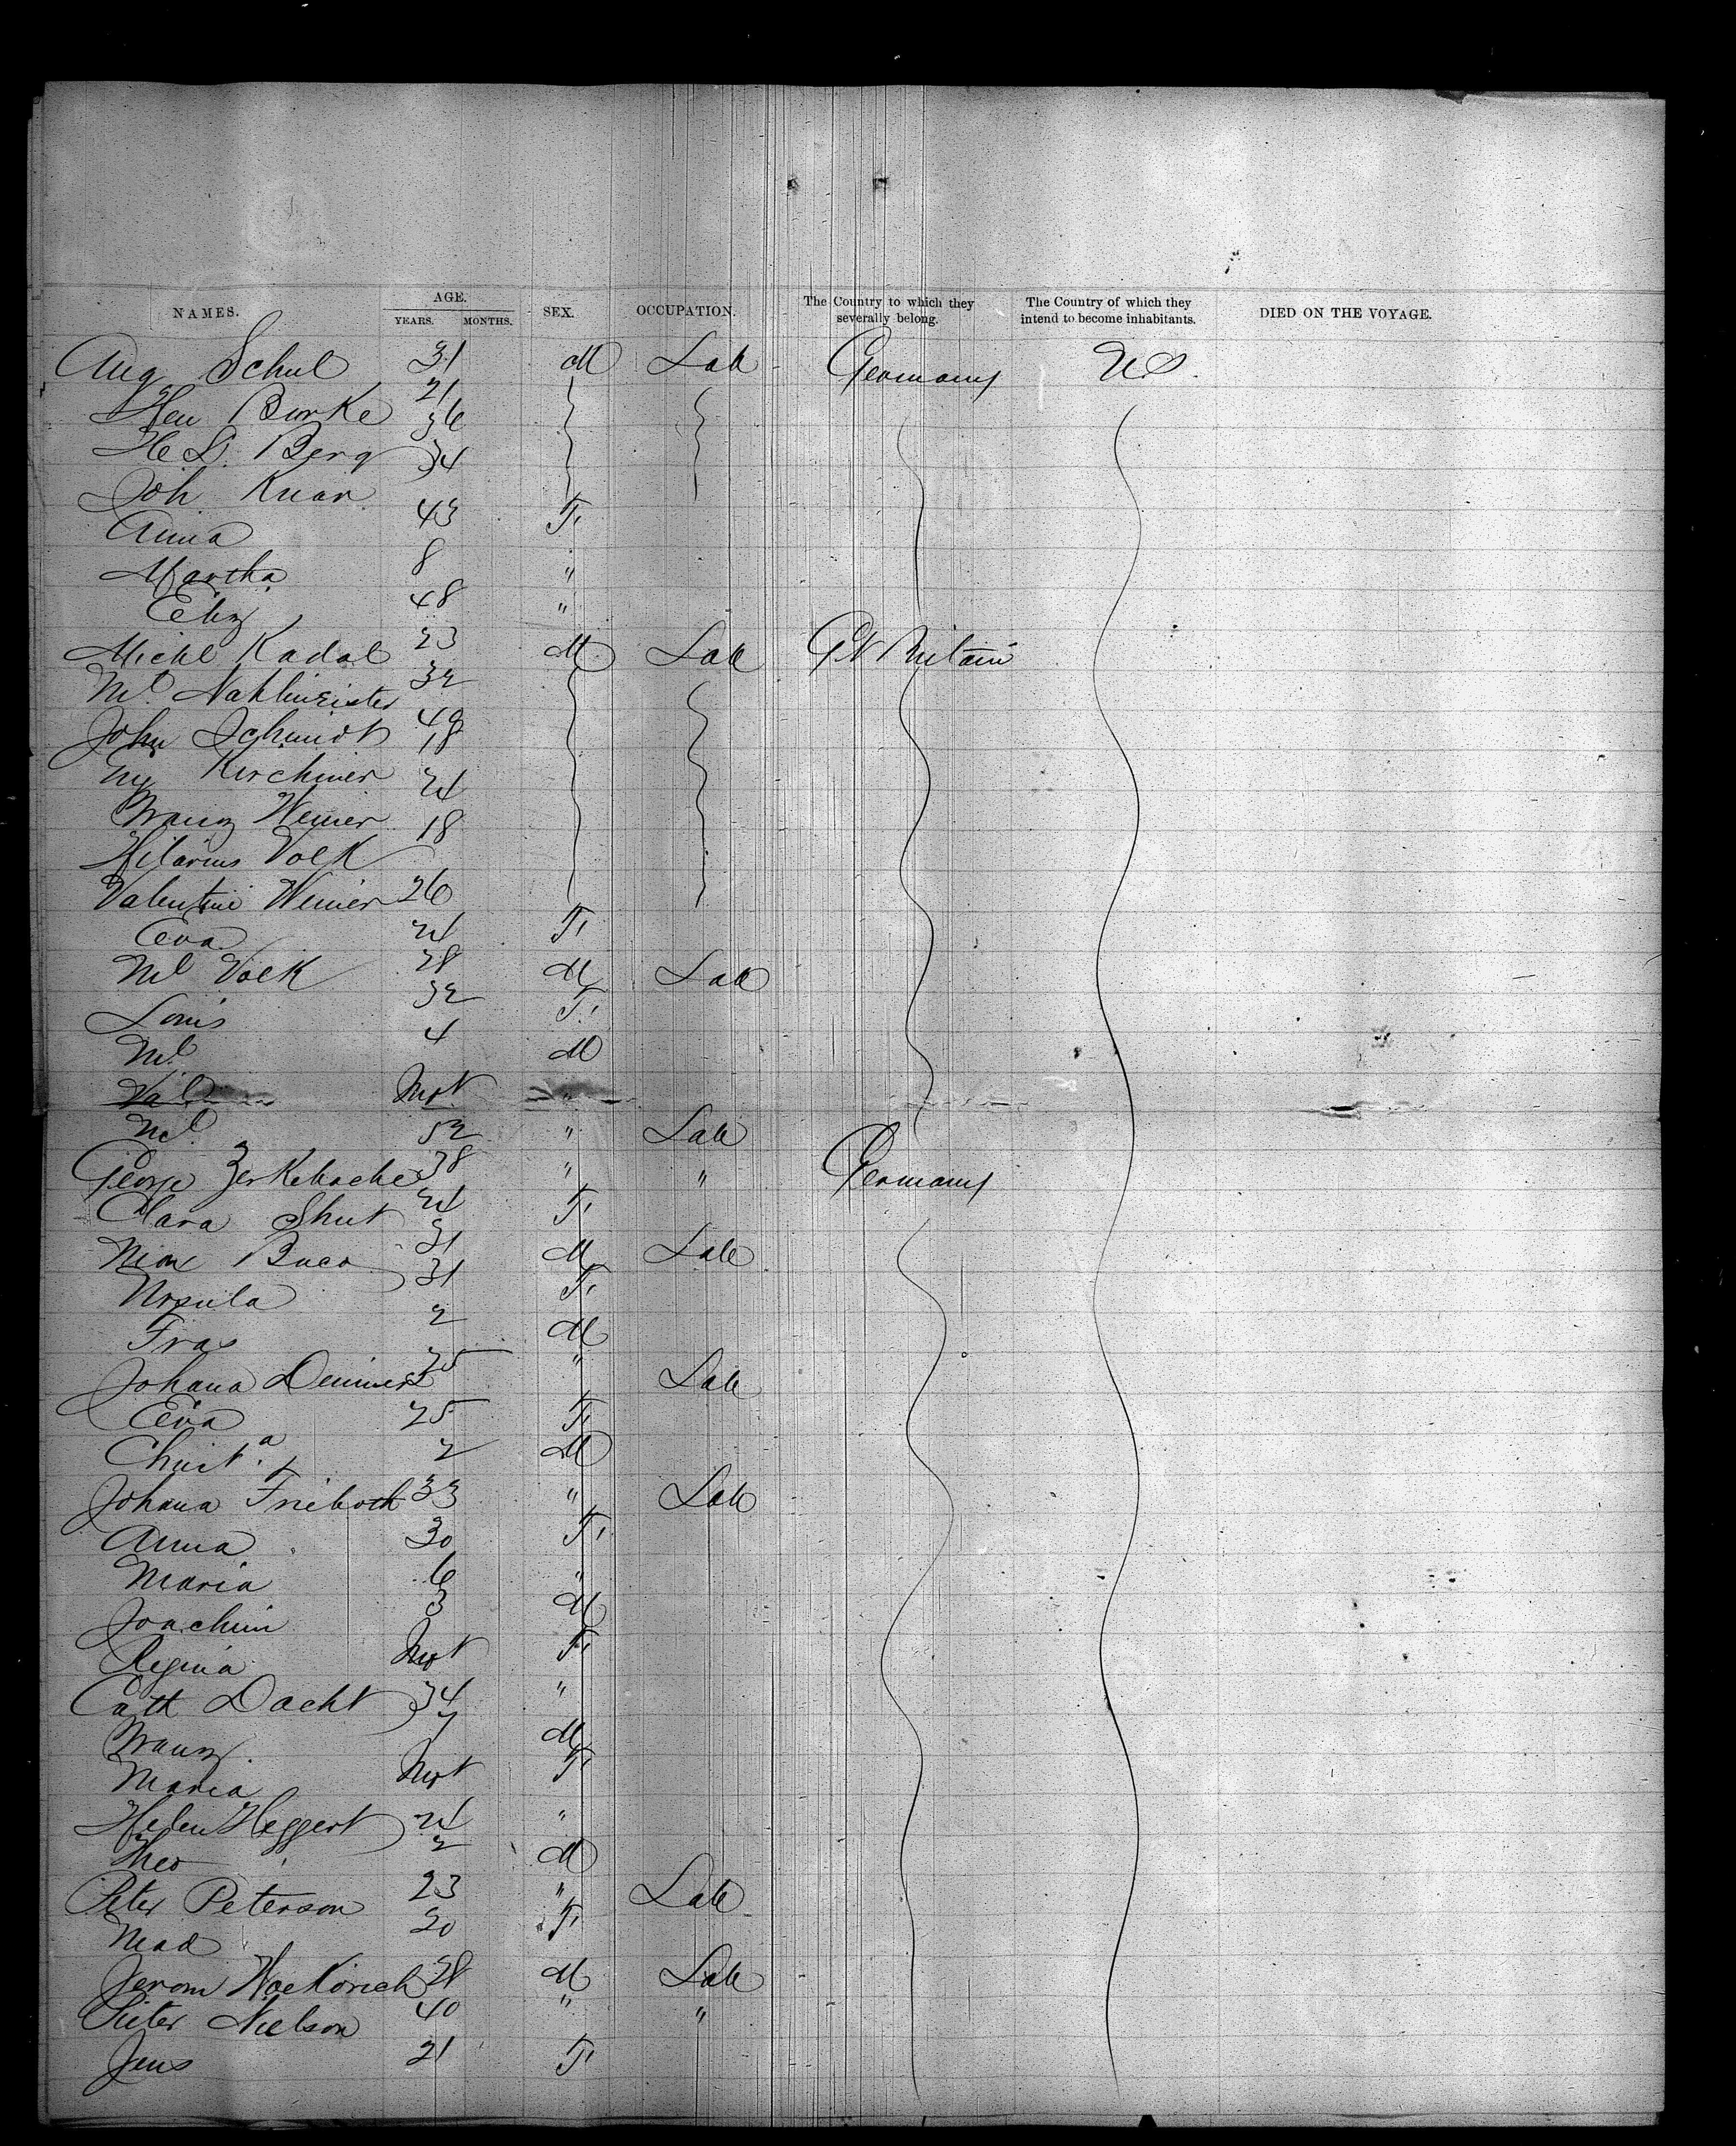 NAMES. AGE. YEARS. MONTHS. SEX. OCCUPATION. The Country to which they severally belong. The Country of which they intend to become inhabitants. DIED ON THE VOYAGE.
Aug Schul 31 M Lab Germany US
Hen Burke 21
He L. Berg 36
Joh Knar 34
Anna 43 F
Martha 8 "
Eliz 48 "
Michl Kadal 23 M Lab Gt Britain
Ml Nahlmeister 32
John Schmidt 49
Kirchner 18
Franz Weiner 24
Hilarius Volk 18
Valentine Weiner 26
Eva 24 F
Ml Volk 28 M Lab
Louis 32 F
Ml 4 M
Val Inft "
Ml 52 " Lab
George Zerkebache 38 " " Germany
Clara Shut 24 F
Baco 31 M Lab
Ursula 31 F
Fras 2 M
Johana Deimert 25 " Lab
Eva 25 F
Christ.a 2 M
Johana Frieboth 33 " Lab
Anna 30 F
Maria 6 "
Joachim 3 M
Regina Inft F
Cath Dacht 34 "
Franz 7 M
Maria Inft F
Helen Heggert 24 "
Theo 2 M
Peter Peterson 23 " Lab
Mad 20 F
Jerom 28 M Lab
Pieter Nielson 40 " "
Jens 21 F